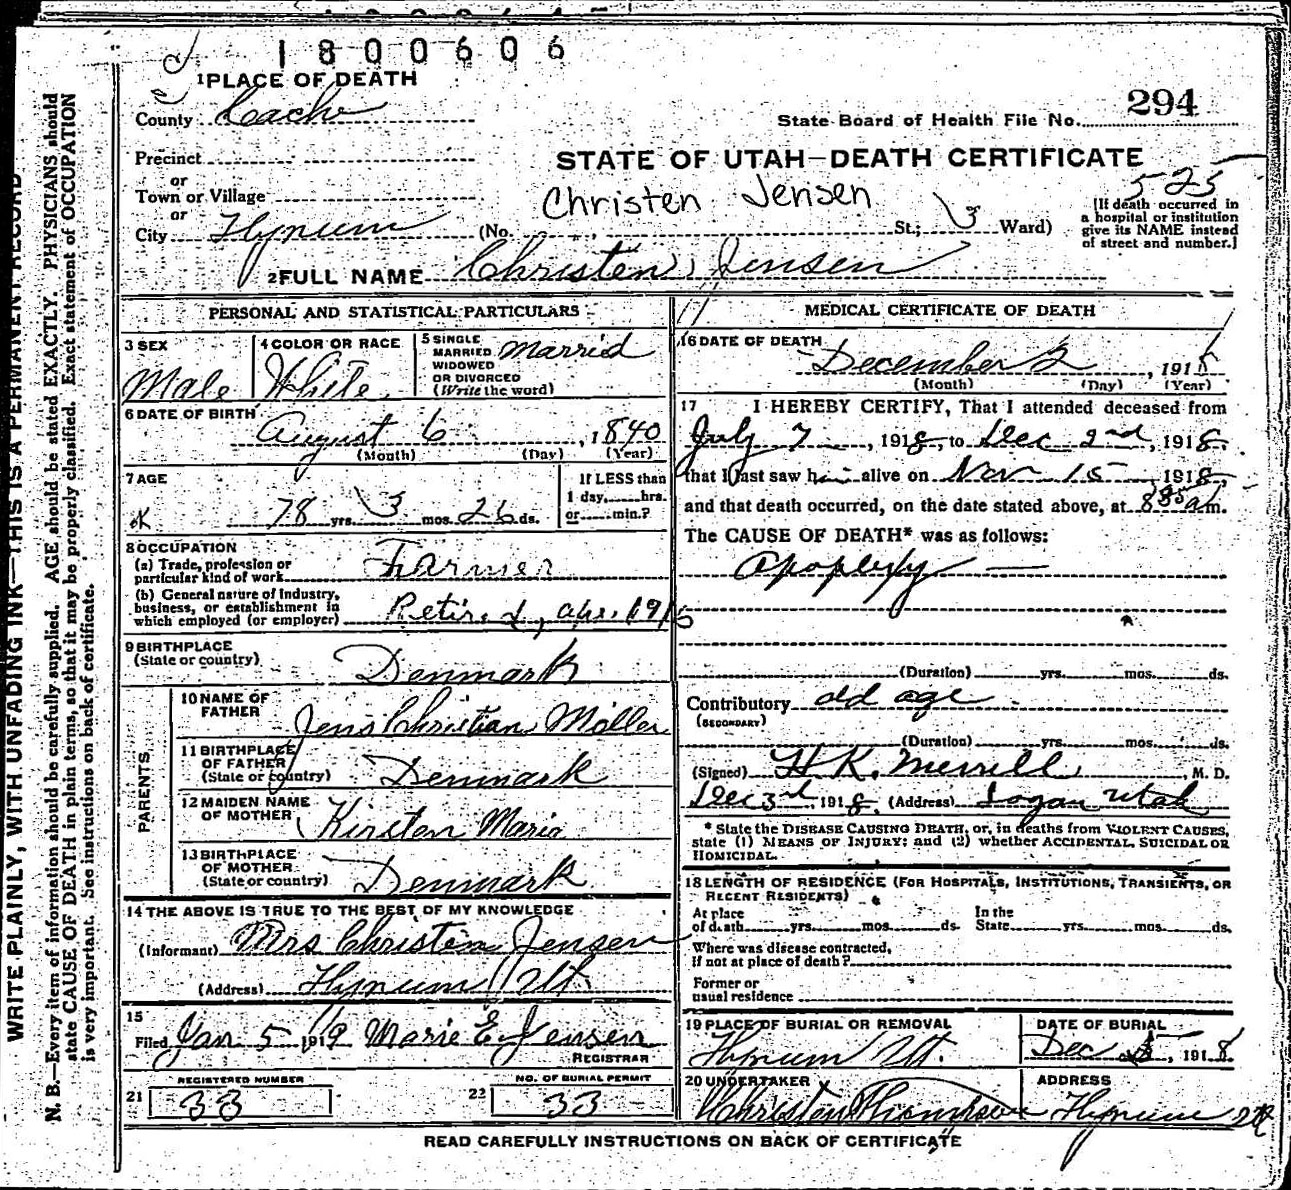 1800606
1 PLACE OF DEATH
County Cache
State Board of Health File No. 294
Precinct
or
STATE OF UTAH—DEATH CERTIFICATE
525
Town or Village
or
Christen Jensen
City Hyrum (No. St.; 3 Ward)
[If death occurred in
a hospital or institution
give its NAME instead
of street and number.]
2 FULL NAME Christen Jensen
PERSONAL AND STATISTICAL PARTICULARS
3 SEX
Male
4 COLOR OR RACE
White
5 SINGLE
MARRIED
WIDOWED
OR DIVORCED
(Write the word)
Married
6 DATE OF BIRTH
August 6, 1840
(Month) (Day) (Year)
7 AGE
78 yrs. 3 mos. 26 ds.
If LESS than
1 day, hrs.
or min.?
8 OCCUPATION
(a) Trade, profession or
particular kind of work Farmer
(b) General nature of Industry,
business, or establishment in
which employed (or employer) Retired, apr. 1915
9 BIRTHPLACE
(State or country) Denmark
PARENTS
10 NAME OF
FATHER
Jens Christian Moller
11 BIRTHPLACE
OF FATHER
(State or country) Denmark
12 MAIDEN NAME
OF MOTHER Kirsten Maria
13 BIRTHPLACE
OF MOTHER
(State or country) Denmark
14 THE ABOVE IS TRUE TO THE BEST OF MY KNOWLEDGE
(Informant) Mrs Christen Jensen
(Address) Hyrum Ut.
15
Filed Jan 5 1919 Marie E. Jensen
REGISTRAR
REGISTERED NUMBER
21 33
NO. OF BURIAL PERMIT
22 33
MEDICAL CERTIFICATE OF DEATH
16 DATE OF DEATH
December 2, 1918
(Month) (Day) (Year)
17 I HEREBY CERTIFY, That I attended deceased from
July 7, 1918, to Dec 2nd, 1918.
that I last saw him alive on Nov 15 1918,
and that death occurred, on the date stated above, at 835 am.
The CAUSE OF DEATH* was as follows:
Apoplexy
(Duration) yrs. mos. ds.
Contributory old age.
(SECONDARY)
(Duration) yrs. mos. ds.
(Signed) H K. Merrill, M. D.
Dec 3rd 1918. (Address) Logan Utah
* State the DISEASE CAUSING DEATH, or, in deaths from VIOLENT CAUSES,
state (1) MEANS OF INJURY; and (2) whether ACCIDENTAL, SUICIDAL OR
HOMICIDAL.
18 LENGTH OF RESIDENCE (FOR HOSPITALS, INSTITUTIONS, TRANSIENTS, OR
RECENT RESIDENTS)
At place
of death yrs. mos. ds.
In the
State yrs. mos. ds.
Where was disease contracted,
If not at place of death?
Former or
usual residence
19 PLACE OF BURIAL OR REMOVAL
Hyrum Ut.
DATE OF BURIAL
Dec 5, 1918.
20 UNDERTAKER
Christen Thompson
ADDRESS
Hyrum Ut
READ CAREFULLY INSTRUCTIONS ON BACK OF CERTIFICATE
WRITE PLAINLY, WITH UNFADING INK—THIS IS A PERMANENT RECORD
N. B.—Every item of information should be carefully supplied. AGE should be stated EXACTLY. PHYSICIANS should
state CAUSE OF DEATH in plain terms, so that it may be properly classified. Exact statement of OCCUPATION
is very important. See instructions on back of certificate.